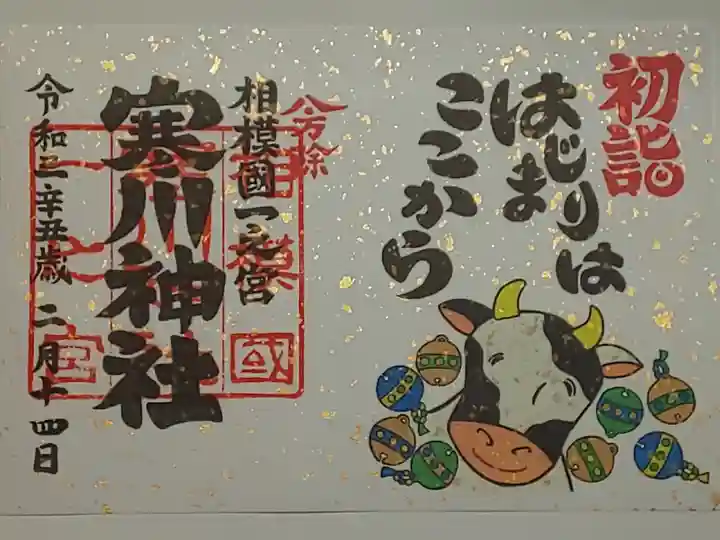 初詣
はじまりは
ここから
八方除
相模國一之宮
寒川神社
令和三辛丑歳 二月十四日